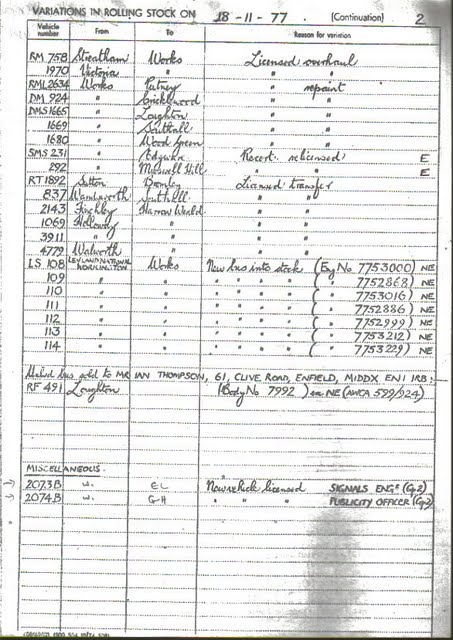 VARIATIONS IN ROLLING STOCK ON 18-11-77 (Continuation) 2
Vehicle number From To Reason for variation
RM 758 Streatham Works Licensed overhaul
1970 Victoria " " "
RML 2634 Works Putney " repaint
DM 924 " Cricklewood " "
DMS 1665 " Loughton " "
1669 " Southall " "
1680 " Wood Green " "
SMS 231 " Edgware Recert. relicensed E
292 " Muswell Hill " " E
RT 1892 Sutton Bromley Licensed transfer
837 Wandsworth Southall " "
2143 Finchley Harrow Weald " "
1069 Holloway " " "
3911 " " " "
4779 Walworth " " "
LS 108 LEYLAND NATIONAL WORKINGTON Works New bus into stock (Eng No 7753000) NE
109 " " " " " " ( " 7752868) NE
110 " " " " " " ( " 7753016) NE
111 " " " " " " ( " 7752886) NE
112 " " " " " " ( " 7752999) NE
113 " " " " " " ( " 7753212) NE
114 " " " " " " ( " 7753229) NE
bus sold to MR IAN THOMPSON, 61, CLIVE ROAD, ENFIELD, MIDDX EN1 1RB:-
RF 491 Loughton (Body No 7992) ex NE (AWCA 599/924)
MISCELLANEOUS.
2073B W. EL New vehicle licensed SIGNALS ENGR (Gp.2)
2074B W. G-H " " " PUBLICITY OFFICER (Gp.2)